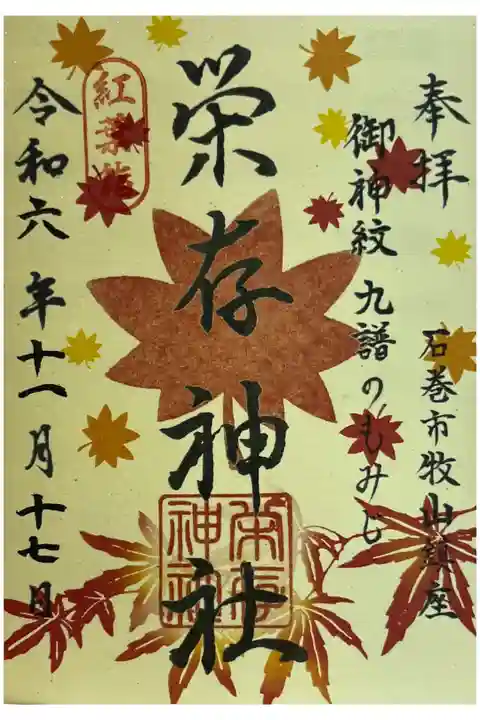 奉拝
石巻市牧山鎮座
御神紋 九譜のもみじ
栄存神社
栄存神社
紅葉
令和六年十一月十七日